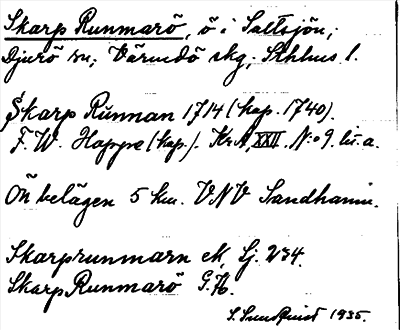 Skarp Runmarö, ö i Saltsjön;
Djurö sn; Värmdö skg; Sthlms l.
Skarp Runman 1714 (kop. 1740).
F. W. Hoppe (kop.). KrA, XXII. N:o 9. lit. a.
Ön belägen 5 km. VNV Sandhamn.
Skarprunmarn eK, Sj. 234.
Skarp Runmarö G.K.
S. Sundquist 1935.